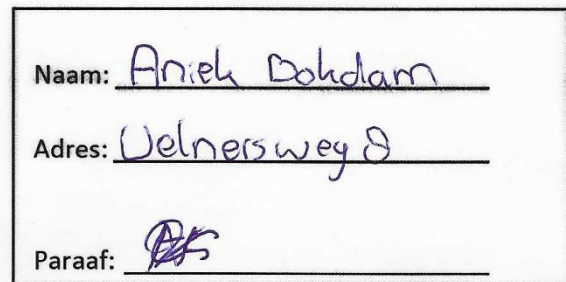 Naam: Aniek Dokdam
Adres: Velnersweg 8
Paraaf: